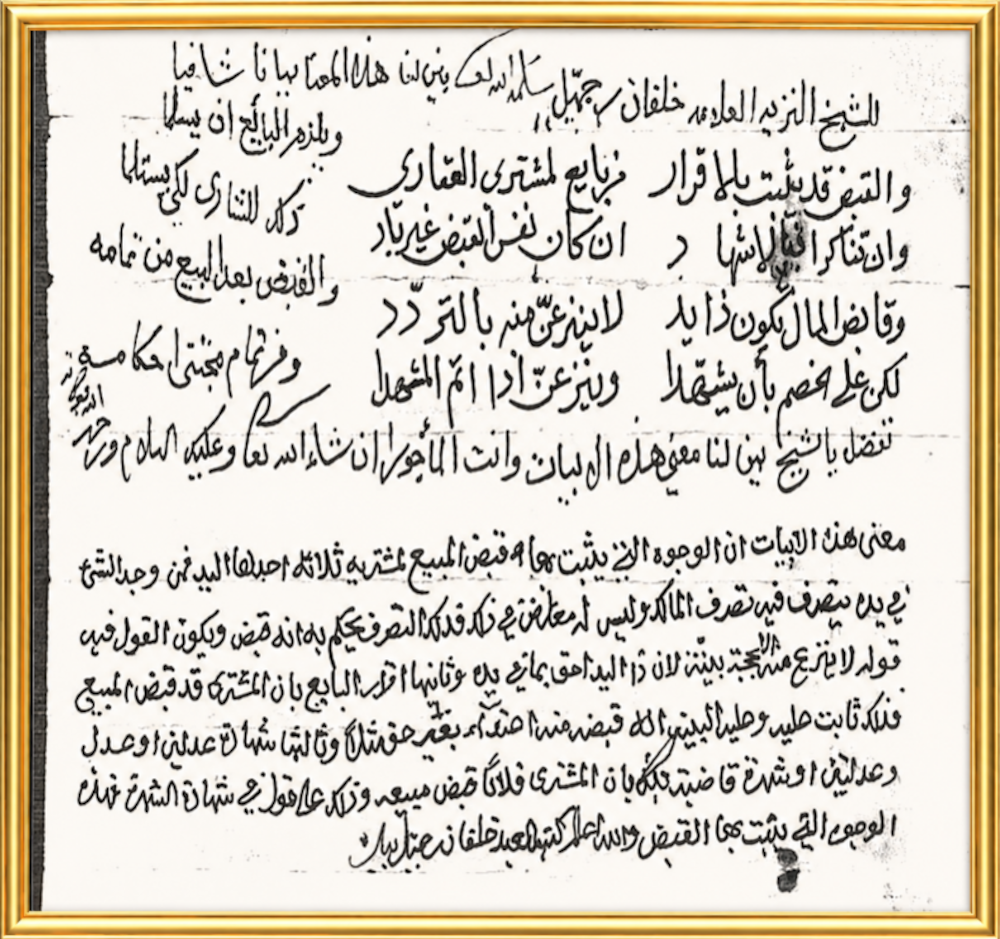 للشيخ النزيه العلامه خلفان بن جميّل سلمه الله تعالى بين لنا هذا المعنا بيانا شافيا
والقبض قد يثبت بالاقرار من بايع لمشترى العقارى ويلزم البائع ان يسلما
وان تناكرا لاشهاد ان كان نفس القبض غير باد ذلك للشارى لكى يستلما
وقابض المال يكون ذا يد لا ينزعنّ منه بالتردّد والقبض بعد البيع من تمامه
لكن على الخصم بأن يشهدا وينزعنّ اذا اتم المشهدا وفر تمام مجتنى احكامه
تفضل يا شيخ بين لنا معنى هذه الابيات وانت المأجور ان شاء الله تعالى وعليك السلام ورحمة الله وبركاته
معنى هذه الابيات ان الوجوه التي يثبت بها قبض المبيع لمشتريه ثلاثة احدها اليد فمن وجد الشئ
في يده يتصرف فيه تصرف المالك وليس له معارض في ذلك فذلك التصرف يحكم به انه قبض ويكون القول فيه
قوله لا ينزع منه الا بحجة بينة لان ذا اليد احق بما في يده وثانيها اقرار البايع بان المشترى قد قبض المبيع
فذلك ثابت عليه وعليه البينة انه قبضه منه بغير حق مثلا وثالثها شهادة عدلين او عدل
وعدلتين او شهرة قاضية بان المشترى فلانا قبض مبيعه وذلك على قول في شهادة الشهرة فهذه
الوجوه التي يثبت بها القبض والله اعلم كتبه العبد خلفان بن جميل بيده